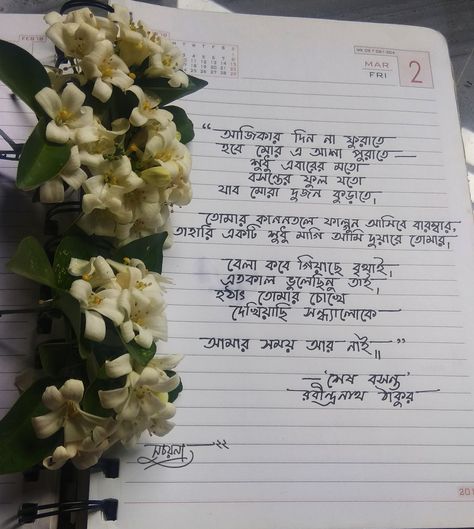 WK 09 * 061-304
MAR
FRI
2
"আজিকার দিন না ফুরাতে
হবে মোর এ আশা পুরাতে —
শুধু এবারের মতো
বসন্তের ফুল যতো
যাব মোরা দুজন কুড়াতে।
তোমার কাননতলে ফাল্গুন আসিবে বারম্বার,
তাহারি একটি শুধু মাগি আমি দুয়ারে তোমার।
বেলা কবে গিয়াছে বৃথাই।
এতকাল ভুলেছিনু তাই।
হঠাৎ তোমার চোখে
দেখিয়াছি সন্ধ্যালোকে —
আমার সময় আর নাই॥"
— 'শেষ বসন্ত'
রবীন্দ্রনাথ ঠাকুর